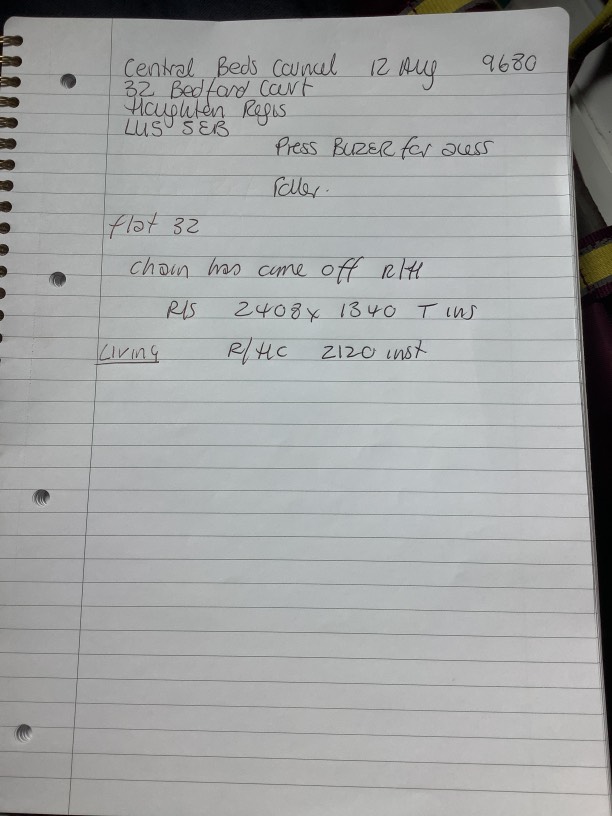 Central Beds Council 12 Aug 9680
32 Bedford Court
Haughten Regis
LU5 5EB
Press BUZER for acess
Roller.
flat 32
Chain has come off R/H
R/S 2408 x 1340 T ins
Living R/HC 2120 inst